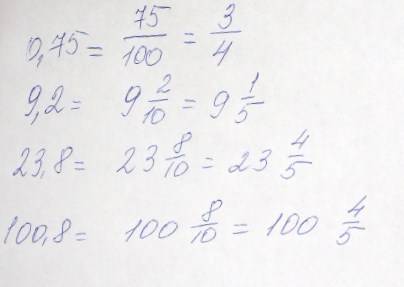 0,75 = 75/100 = 3/4
9,2 = 9 2/10 = 9 1/5
23,8 = 23 8/10 = 23 4/5
100,8 = 100 8/10 = 100 4/5